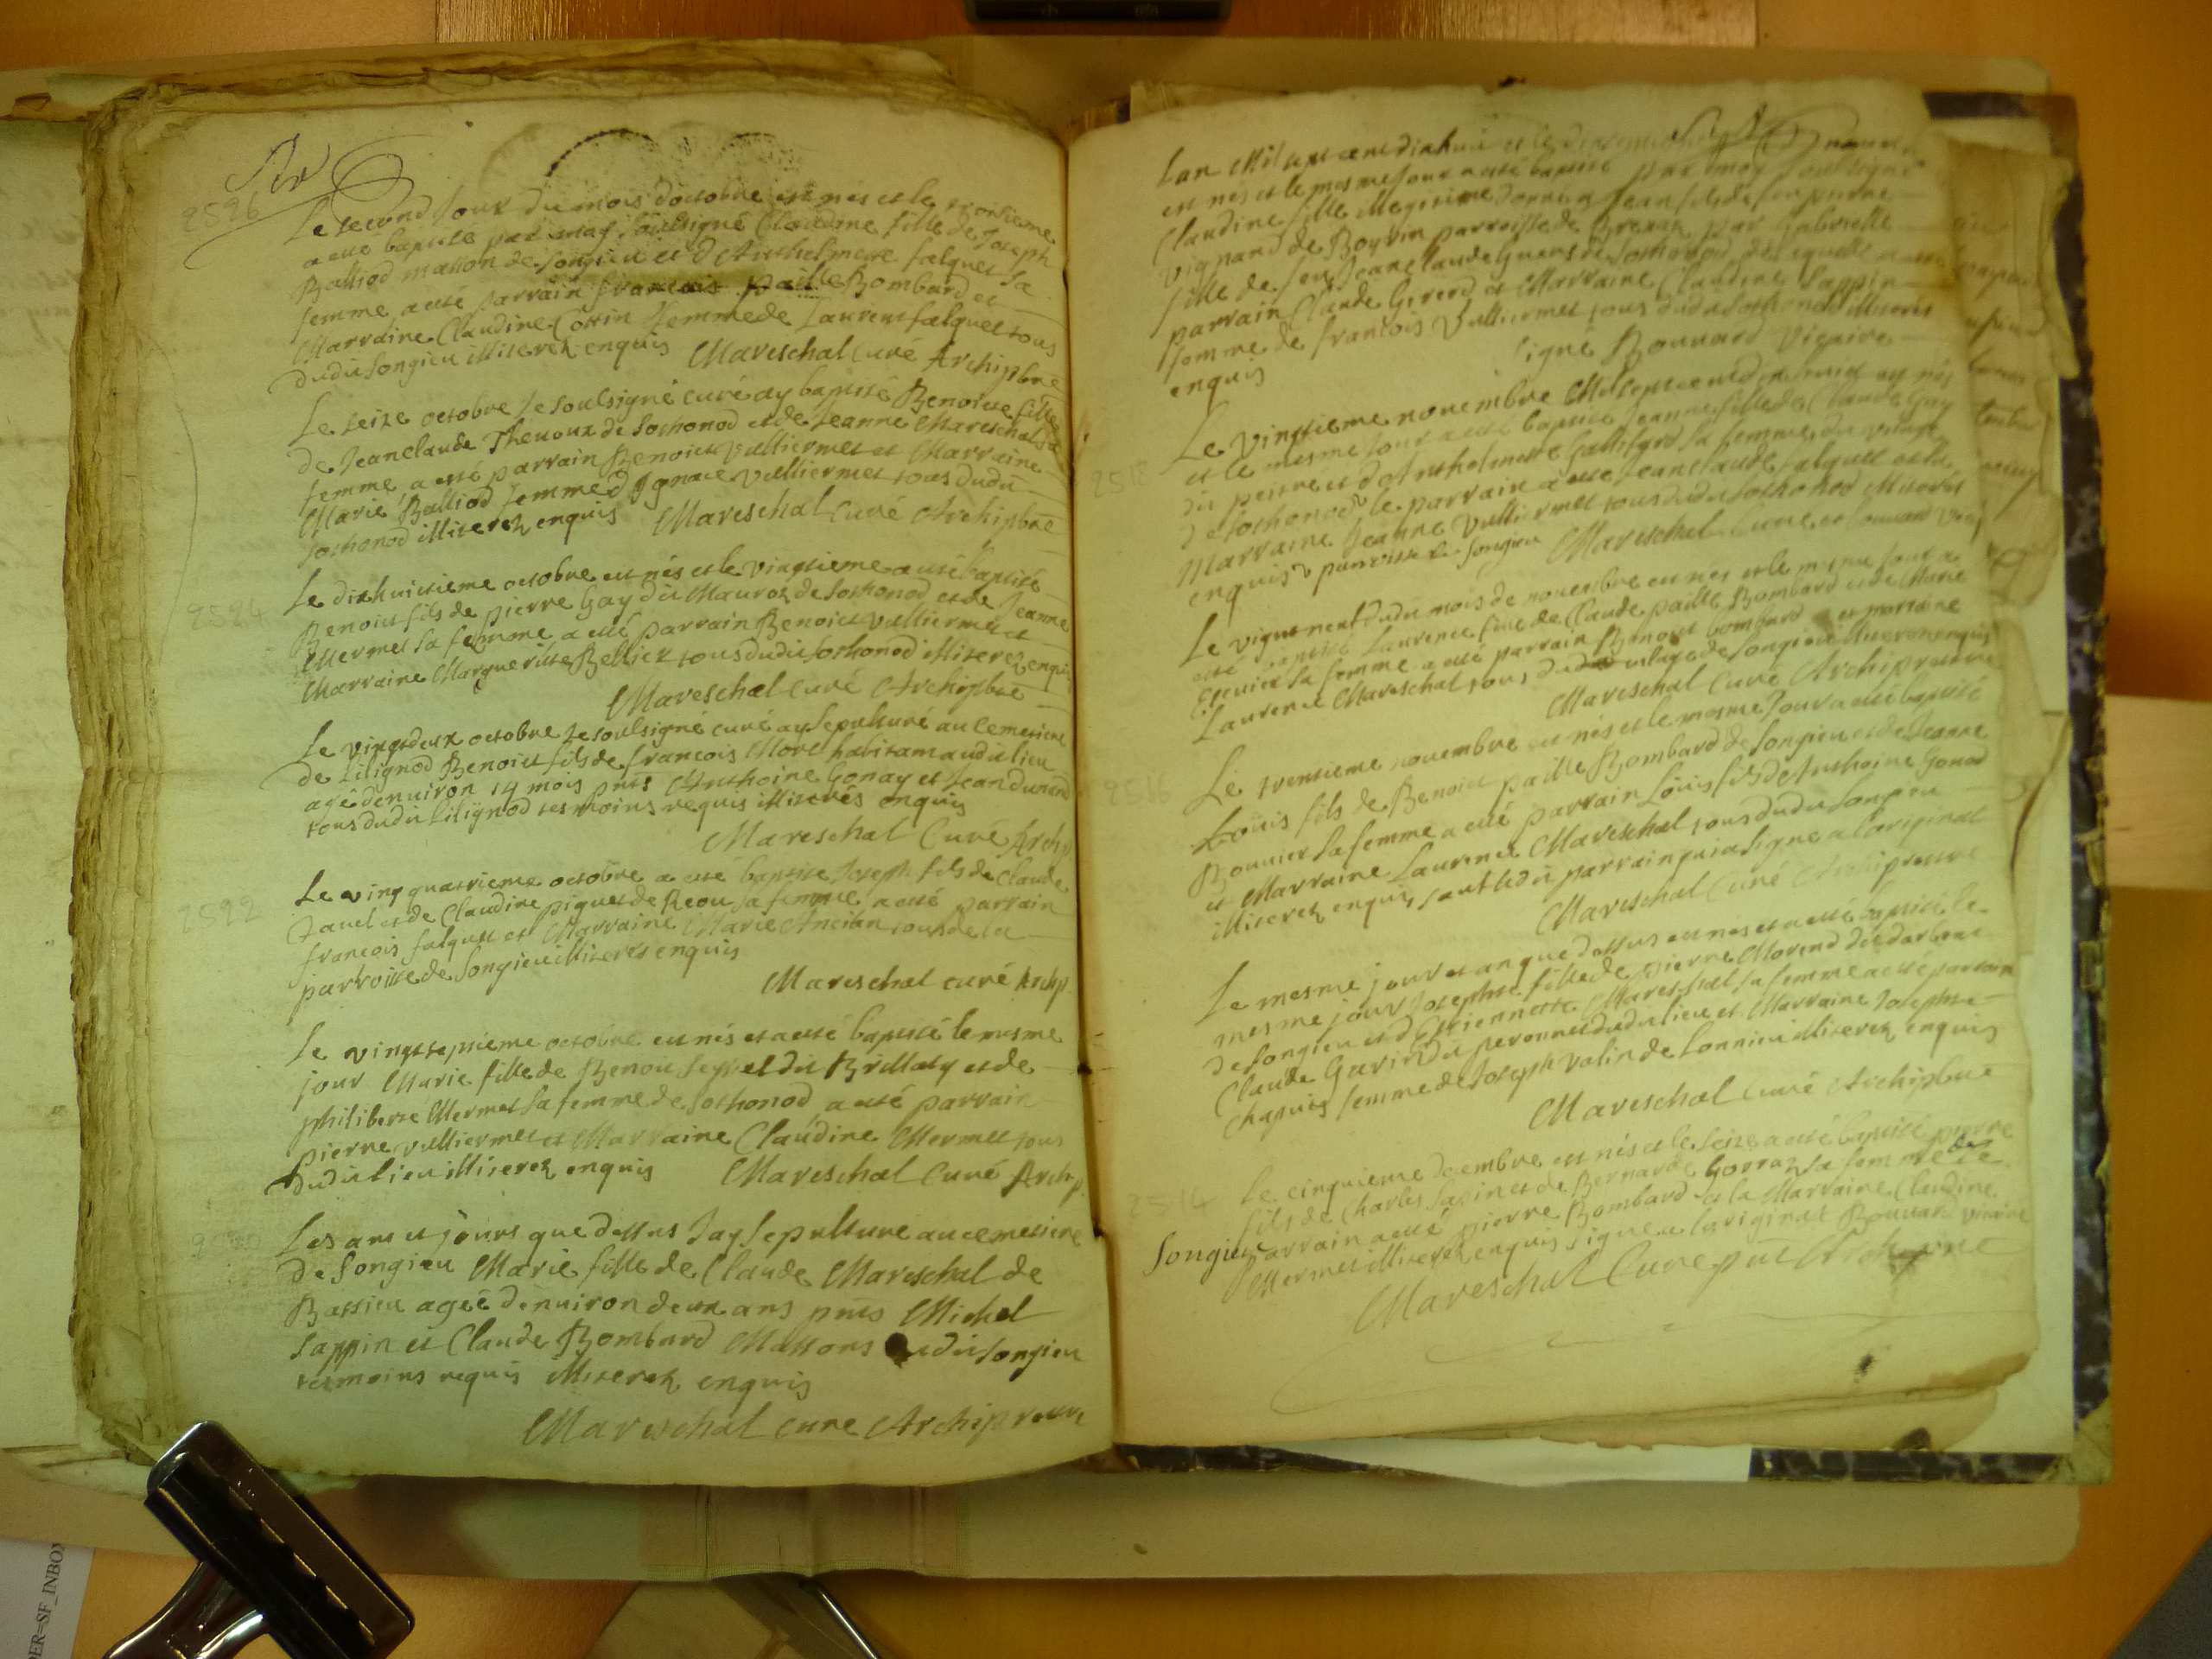 2526
Le second Jour du mois doctobre est nés et le troisieme
a esté baptisée par moy soubsigné Claudine fille de Joseph
Balliod masson de Songieu et d'Anthelmette falquet sa
femme a esté parrain francois paille Bombard et
Marraine Claudine Cottin femme de Laurent falquet tous
dudit Songieu illiterez enquis Mareschal Curé Archipbre
Le seize octobre Je soulsigné curé ay baptisé Benoiste fille
de Jeanclaude Thevoux de Sothonod et de Jeanne Mareschal sa
femme a esté parrain Benoict Vulliermet et Marraine
Marie Balliod femme d'Ignace Vulliermet tous dudit
Sothonod illiterez enquis Mareschal Curé Archipbre
2524
Le dixhuictieme octobre est nés et le vingtieme a esté baptisé
Benoict fils de pierre Gay dit Mauroz de Sothonod et de Jeanne
Mermet sa femme a esté parrain Benoict Vulliermet et
Marraine Margueritte Bellier tous dudit Sothonod illiterez enquis
Mareschal Curé Archipbre
Le vingtdeux octobre Je soulsigné curé ay sepulturé au cemetiere
de Lilignod Benoict fils de francois Morel habitant audit lieu
agé denuiron 14 mois pnts Anthoine Gonay et Jean Durand
tous dudit Lilignod tesmoins requis illiterés enquis
Mareschal Curé Archip
2522
Le vingquatrieme octobre a esté baptisé Joseph fils de Claude
Javel et de Claudine piquet de Reou sa femme a esté parrain
francois falquet et Marraine Marie Ancian tous de la
parroisse de Songieu illiterés enquis
Mareschal curé Archip
Le vingtseptieme octobre est nés et a esté baptisé le mesme
jour Marie fille de Benoict Seyvel dit Brillaty et de
philiberte Mermet sa femme de Sothonod a esté parrain
pierre Vulliermet et Marraine Claudine Mermet tous
dudit lieu illiterez enquis Mareschal Curé Archip
Les ans et jours que dessus Jay sepulturé au cemetiere
de Songieu Marie fille de Claude Mareschal de
Bassieu ageé denuiron deux ans pnts Michel
Sappin et Claude Bombard Massons dudit Songieu
tesmoins requis illiterez enquis
Mareschal curé Archiprestre
Lan Mil sept cent dixhuit et le
est nés et le mesme Jour a esté baptisé par moy soubsigné
Claudine fille illegitime donnée a Jean fils de feu pierre
Vignand de Boyrin parroisse de par Gabrielle
fille de feu Jeanclaude Guers de Sothonod
parrain Claude Girerd et Marraine Claudine Sappin
femme de francois Vulliermet tous dudit Sothonod illiterés
enquis signé Bonnard Vicaire
2518
Le Vingtieme novembre Mil sept cent dixhuict est nés
et le mesme Jour a esté baptisé Jeanne fille de Claude Gay
dit peitre et d'Anthelmette Gallifard sa femme du village
de Sothonod le parrain a esté Jeanclaude falquet et la
Marraine Jeanne Vulliermet tous dudit Sothonod illiterés
enquis parroisse de Songieu Mareschal Curé
Le vigntneuf dudit mois de novembre est nés et le mesme Jour a
esté baptisé Laurence fille de Claude paille Bombard et de Marie
Esevier sa femme a esté parrain Benoict bombard et marraine
Laurence Mareschal tous dudit vilage de Songieu illiterez enquis
Mareschal Curé Archiprestre
Le trentieme novembre est nés et le mesme Jour a esté baptisé
Loüis fils de Benoict paille Bombard de Songieu et de Jeanne
Bouvier sa femme a esté parrain Loüis fils de Anthoine Gonod
et Marraine Laurence Mareschal tous dudit Songieu
illiterez enquis sauf ledit parrain qui a signé a loriginal
Mareschal Curé Archiprestre
Le mesme jour et an que dessus est nés et a esté baptisé le
mesme jour Josephte fille de pierre Morend dit
de Songieu et d'Estiennette Mareschal sa femme a esté parrain
Claude Gavin dit peronnet dudit lieu et Marraine Josephte
Chapuis femme de Joseph Valin de Sonnieu illiterez enquis
Mareschal Curé Archipbre
2514
Le cinquieme decembre est nés et le seize a esté baptisé pierre
fils de Charles Sapin et de Bernarde Gorraz sa femme de
Songieu parrain a esté pierre Bombard et la Marraine Claudine
Mermet illiterez enquis signé a loriginal Bonnard vicaire
Mareschal Curé